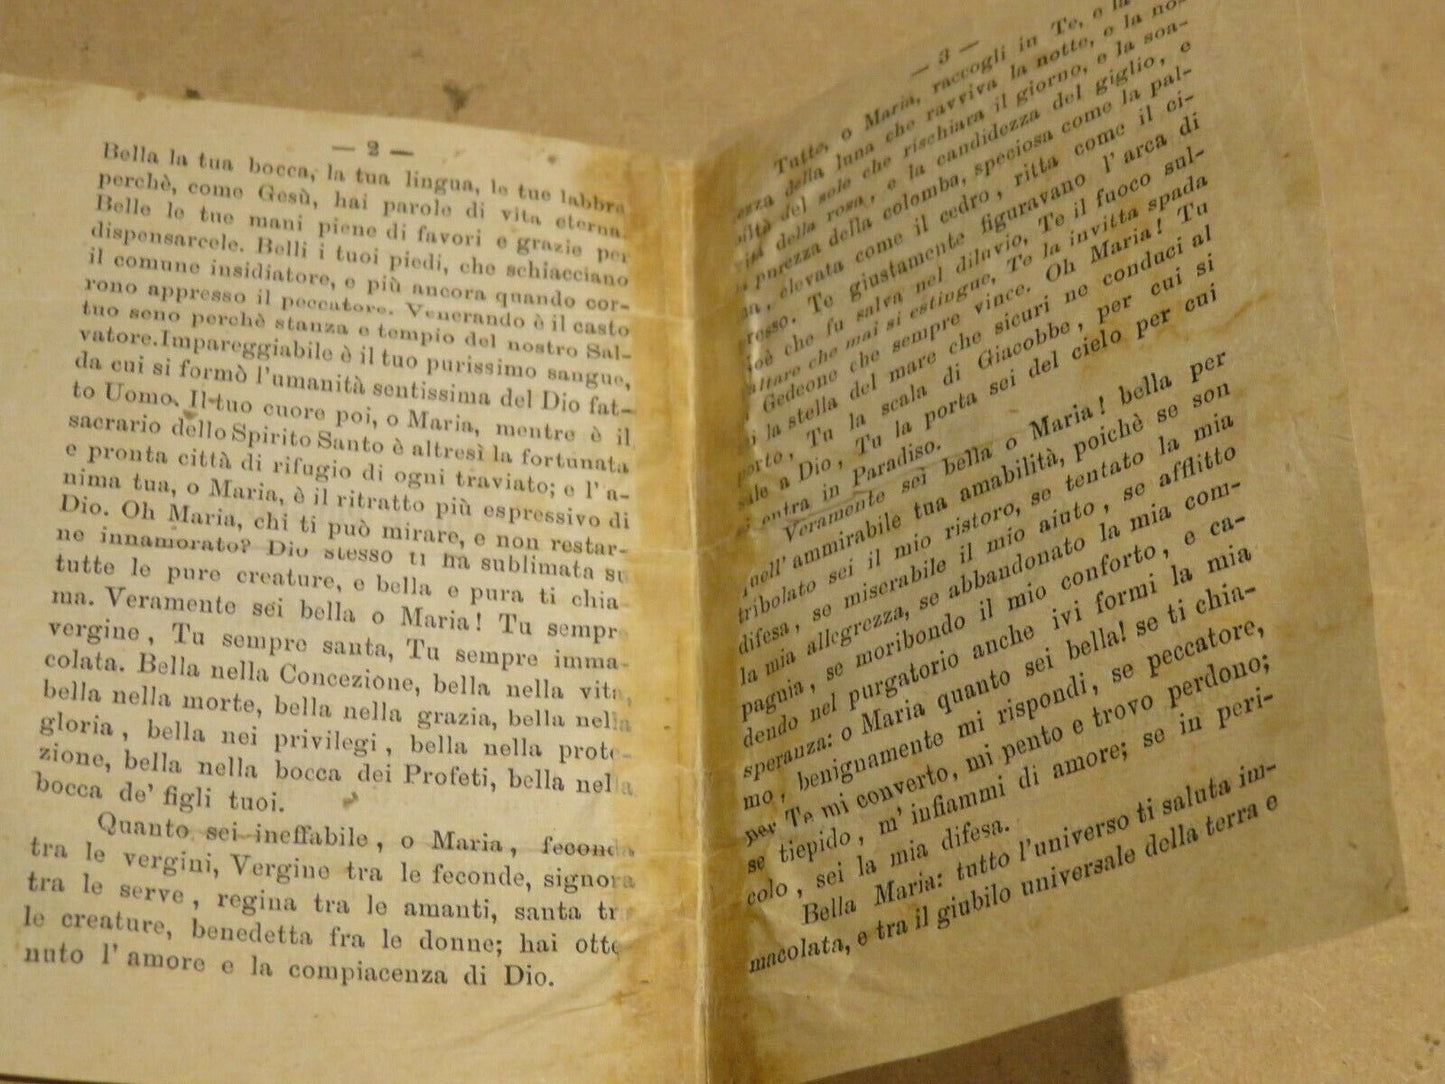 — 2 —
Bella la tua bocca, la tua lingua, le tue labbra
perchè, come Gesù, hai parole di vita eterna.
Belle le tue mani piene di favori e grazie per
dispensarcele. Belli i tuoi piedi, che schiacciano
il comune insidiatore, e più ancora quando cor-
rono appresso il peccatore. Venerando è il casto
tuo seno perchè stanza e tempio del nostro Sal-
vatore. Impareggiabile è il tuo purissimo sangue,
da cui si formò l'umanità sentissima del Dio fat-
to Uomo. Il tuo cuore poi, o Maria, mentre è il
sacrario dello Spirito Santo è altresì la fortunata
e pronta città di rifugio di ogni traviato; e l' a-
nima tua, o Maria, è il ritratto più espressivo di
Dio. Oh Maria, chi ti può mirare, e non restar-
ne innamorato? Dio stesso ti ha sublimata su
tutte le pure creature, e bella e pura ti chia-
ma. Veramente sei bella o Maria! Tu sempre
vergine, Tu sempre santa, Tu sempre imma-
colata. Bella nella Concezione, bella nella vita,
bella nella morte, bella nella grazia, bella nella
gloria, bella nei privilegi, bella nella prote-
zione, bella nella bocca dei Profeti, bella nella
bocca de' figli tuoi.
Quanto sei ineffabile, o Maria, feconda
tra le vergini, Vergine tra le feconde, signora
tra le serve, regina tra le amanti, santa tra
le creature, benedetta fra le donne; hai otte
nuto l' amore e la compiacenza di Dio.
— 3 —
Tutte, o Maria, raccogli in Te, e la
della luna che ravviva la notte, e la no-
del sole che rischiara il giorno, e la soa-
della rosa, e la candidezza del giglio, e
purezza della colomba, speciosa come la pal-
elevata come il cedro, ritta come il ci-
Te giustamente figuravano l' arca di
che fu salva nel diluvio, Te il fuoco sul-
altare che mai si estingue, Te la invitta spada
Gedeone che sempre vince. Oh Maria! Tu
la stella del mare che sicuri ne conduci al
porto, Tu la scala di Giacobbe, per cui si
sale a Dio, Tu la porta sei del cielo per cui
si entra in Paradiso.
Veramente sei bella o Maria! bella per
quell' ammirabile tua amabilità, poichè se son
tribolato sei il mio ristoro, se tentato la mia
difesa, se miserabile il mio aiuto, se afflitto
la mia allegrezza, se abbandonato la mia com-
pagnia, se moribondo il mio conforto, e ca-
dendo nel purgatorio anche ivi formi la mia
speranza: o Maria quanto sei bella! se ti chia-
mo, benignamente mi rispondi, se peccatore,
per Te mi converto, mi pento e trovo perdono;
se tiepido, m' infiammi di amore; se in peri-
colo, sei la mia difesa.
Bella Maria: tutto l'universo ti saluta im-
macolata, e tra il giubilo universale della terra e